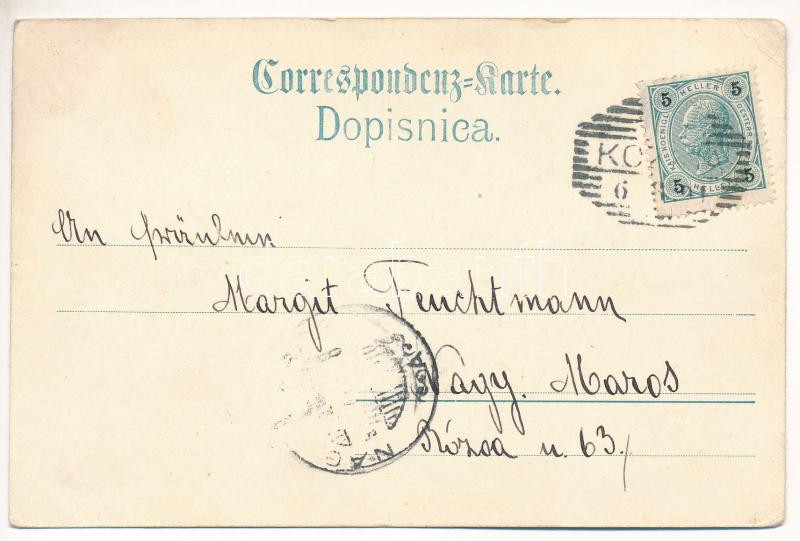 Correspondenz-Karte.
Dopisnica.
5 HELLER 5
KAIS. KOENIGL. OESTERR.
5 HELLER 5
KO
6
An Fräulein
Margit Feuchtmann
Nagy. Maros
Rózsa u. 63.
NAG